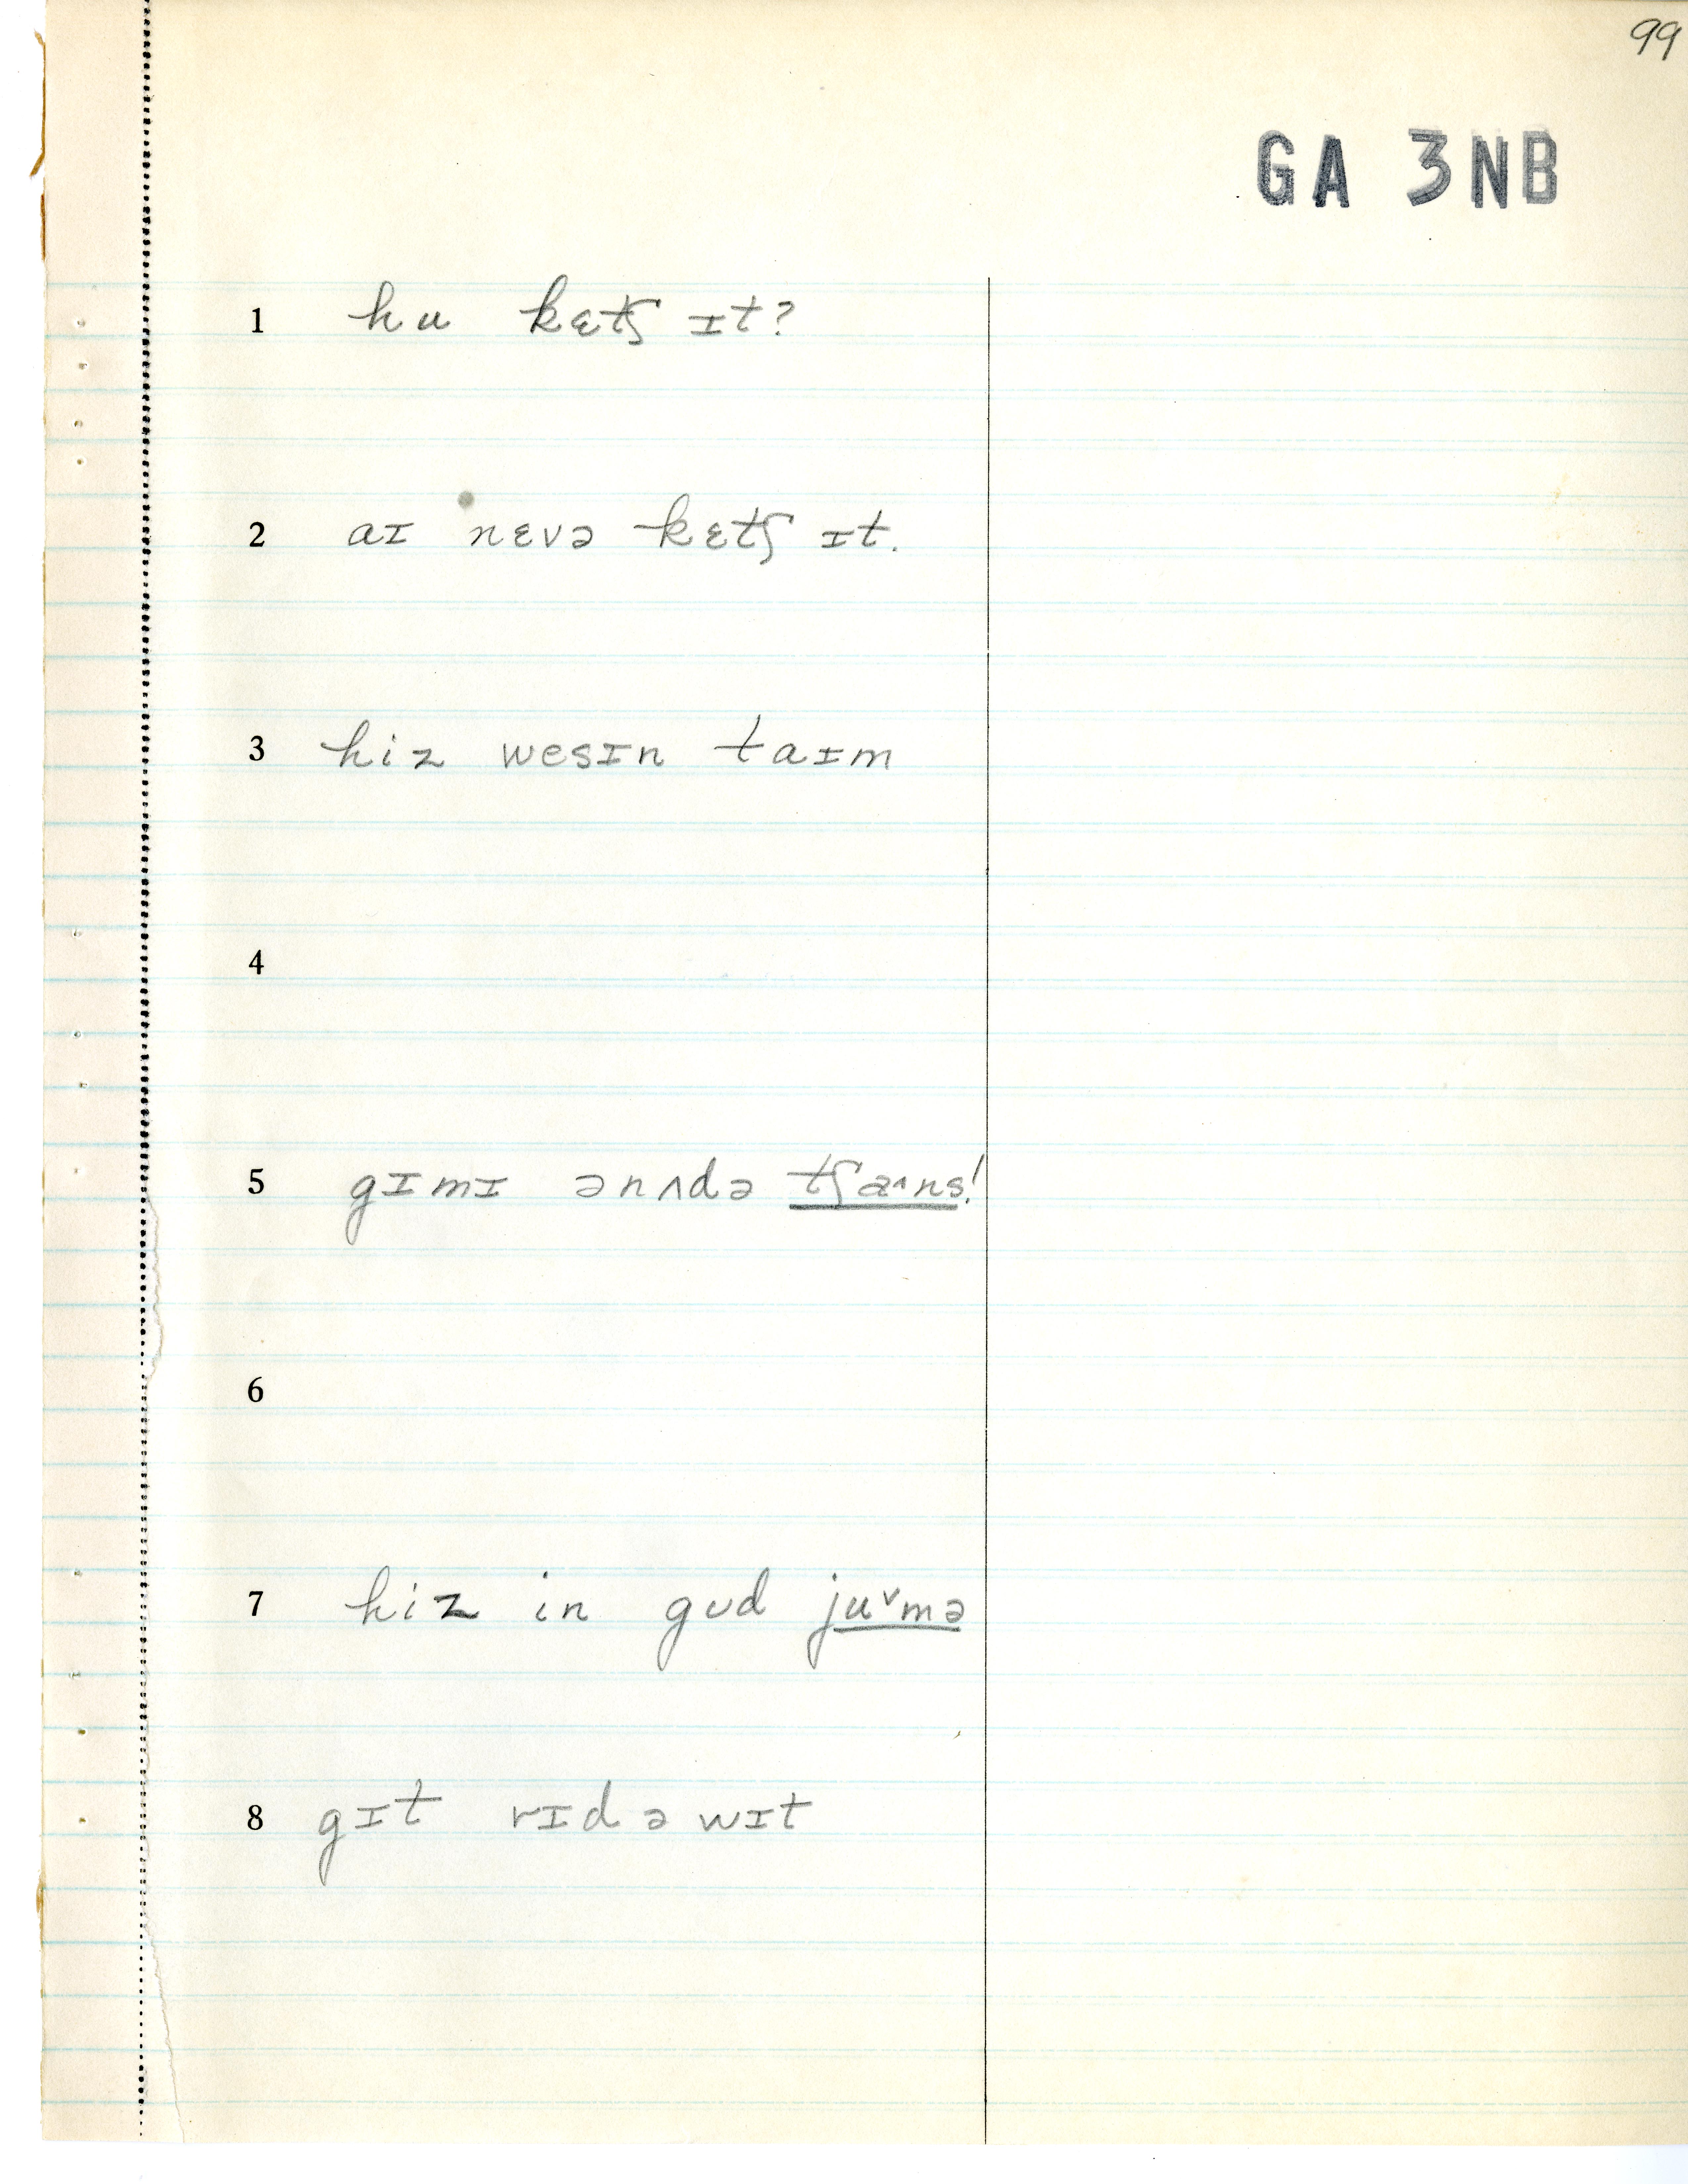 99
GA 3NB
1 hu kɛtʃ ɪt?
2 aɪ nɛvə kɛtʃ ɪt.
3 hiz wesɪn taɪm
4
5 gɪmɪ ənʌdə tʃæ˄ns!
6
7 hiz in gʊd ju˅mə
8 gɪt rɪd ə wɪt